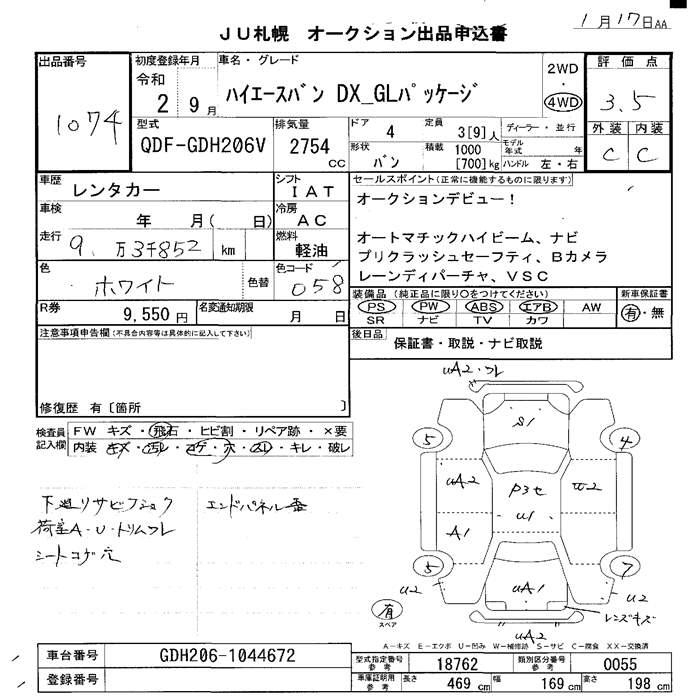 1月17日AA
JU札幌 オークション出品申込書
出品番号
1074
初度登録年月
令和
2 9月
車名・グレード
ハイエースバン DX_GLパッケージ
2WD
・
4WD
評価点
3.5
外装 内装
C C
型式
QDF-GDH206V
排気量
2754
cc
ドア
4
定員
3[9]人
形状
バン
積載
1000
[700]kg
ディーラー・並行
モデル年式 年
ハンドル 左・右
車歴
レンタカー
シフト
IAT
車検
年 月( 日)
冷房
AC
走行
9万3千852 km
燃料
軽油
色
ホワイト
色替
色コード
058
R券
9,550円
名変通知期限
月 日
セールスポイント(正常に機能するものに限ります)
オークションデビュー!
オートマチックハイビーム、ナビ
プリクラッシュセーフティ、Bカメラ
レーンディパーチャ、VSC
装備品(純正品に限り○をつけてください)
PS PW ABS エアB AW
SR ナビ TV カワ
新車保証書
有・無
後日品
保証書・取説・ナビ取説
注意事項申告欄(不具合内容等は具体的に記入して下さい)
修復歴 有〔箇所 〕
検査員記入欄
FW キズ・飛石・ヒビ割・リペア跡・×要
内装 キズ・汚レ・コゲ・穴・スレ・キレ・破レ
下廻リサビフショク
荷室A・U・トリムフレ
シートコゲ穴
エンドパネル歪
UA2・フレ
S1
5
4
UA2
P3セ
U1
W2
A1
5
7
U2
UA1
U2
レンズキズ
UA2
有
スペア
A-キズ E-エクボ U-凹み W-補修跡 S-サビ C-腐食 XX-交換済
車台番号
GDH206-1044672
登録番号
型式指定番号
参考
18762
類別区分番号
参考
0055
車庫証明用
参考
長さ 469 cm 幅 169 cm 高さ 198 cm